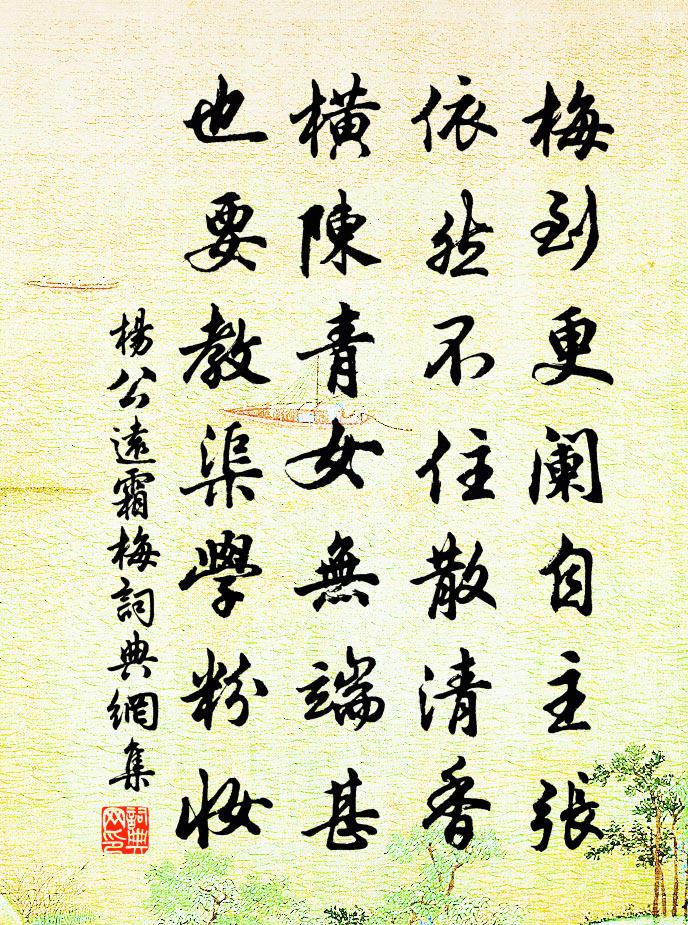 梅到更阑自主張
依然不住散清香
橫陳青女無端甚
也要教渠學粉妝
楊公遠霜梅詞典網集
詞典网印